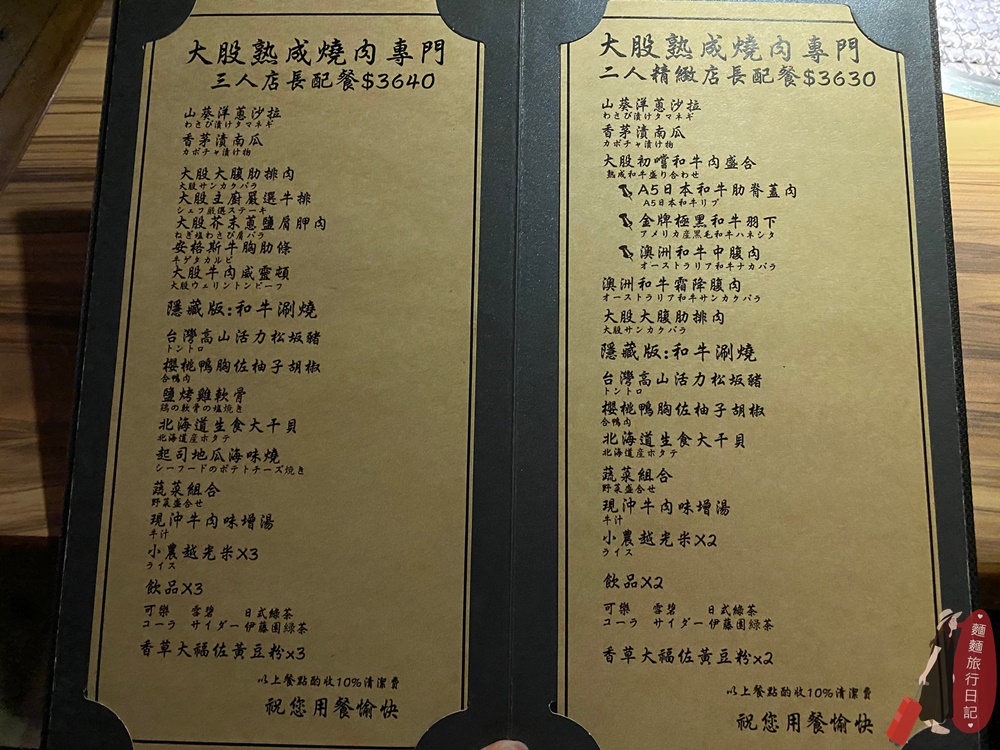 大股熟成燒肉專門
三人店長配餐$3640
山葵洋蔥沙拉
わさび漬けタマネギ
香茅漬南瓜
カボチャ漬け物
大股大腹肋排肉
大股サンカクバラ
大股主廚嚴選牛排
シェフ厳選ステーキ
大股芥末蔥鹽肩胛肉
ねぎ塩わさび肩バラ
安格斯牛胸肋條
牛ゲタカルビ
大股牛肉威靈頓
大股ウェリントンビーフ
隱藏版:和牛涮燒
台灣高山活力松坂豬
トントロ
櫻桃鴨胸佐柚子胡椒
合鴨肉
鹽烤雞軟骨
鶏の軟骨の塩焼き
北海道生食大干貝
北海道産ホタテ
起司地瓜海味燒
シーフードのポテトチーズ焼き
蔬菜組合
野菜盛合せ
現沖牛肉味增湯
牛汁
小農越光米X3
ライス
飲品X3
可樂 雪碧 日式綠茶
コーラ サイダー 伊藤園緑茶
香草大福佐黃豆粉x3
以上餐點酌收10%清潔費
祝您用餐愉快
大股熟成燒肉專門
二人精緻店長配餐$3630
山葵洋蔥沙拉
わさび漬けタマネギ
香茅漬南瓜
カボチャ漬け物
大股初嚐和牛肉盛合
熟成和牛盛り合わせ
A5日本和牛肋脊蓋肉
A5日本和牛リブ
金牌極黑和牛羽下
アメリカ産黒毛和牛ハネシタ
澳洲和牛中腹肉
オーストラリア和牛ナカバラ
澳洲和牛霜降腹肉
オーストラリア和牛サンカクバラ
大股大腹肋排肉
大股サンカクバラ
隱藏版:和牛涮燒
台灣高山活力松坂豬
トントロ
櫻桃鴨胸佐柚子胡椒
合鴨肉
北海道生食大干貝
北海道産ホタテ
蔬菜組合
野菜盛合せ
現沖牛肉味增湯
牛汁
小農越光米X2
ライス
飲品X2
可樂 雪碧 日式綠茶
コーラ サイダー 伊藤園緑茶
香草大福佐黃豆粉x2
以上餐點酌收10%清潔費
祝您用餐愉快
麵麵旅行日記